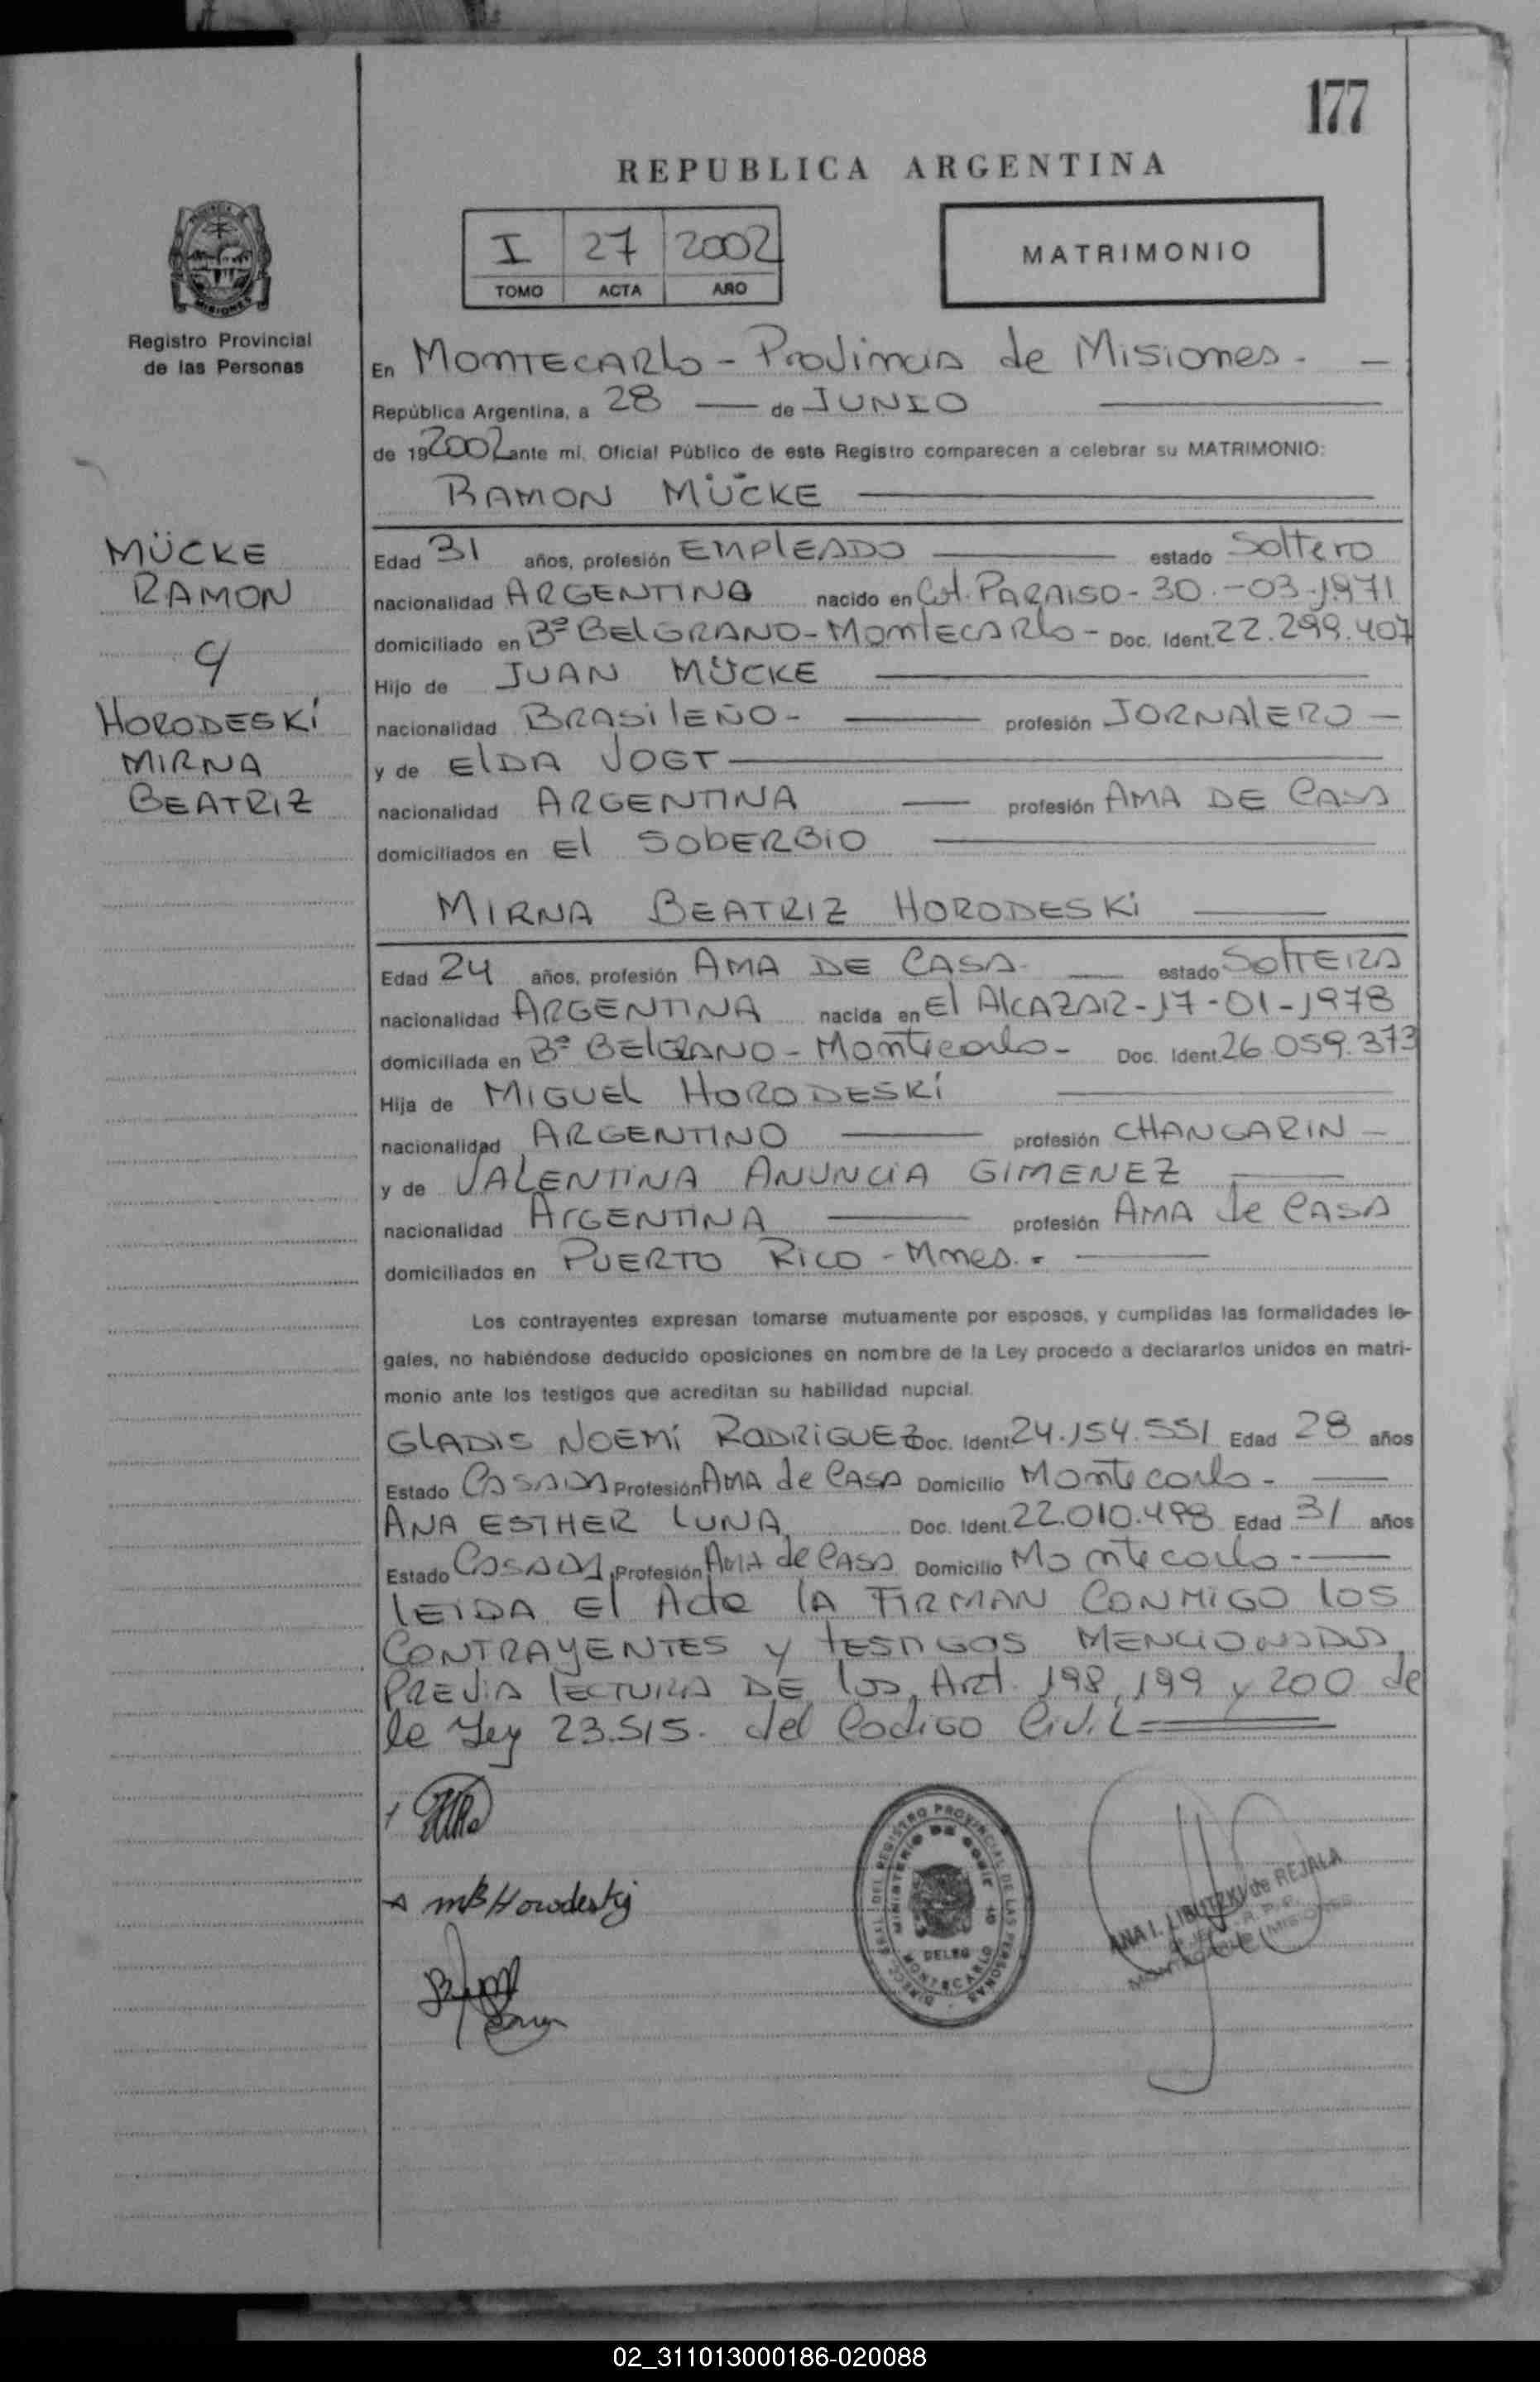 177
REPUBLICA ARGENTINA
I 27 2002
TOMO ACTA AÑO
MATRIMONIO
Registro Provincial
de las Personas
En MONTECARLO - Provincia de Misiones. —
República Argentina, a 28 — de JUNIO
de 19 2002 ante mí, Oficial Público de este Registro comparecen a celebrar su MATRIMONIO:
RAMON MÜCKE
MÜCKE
RAMON
y
HORODESKI
MIRNA
BEATRIZ
Edad 31 años, profesión EMPLEADO estado Soltero
nacionalidad ARGENTINA nacido en Col. PARAISO - 30.-03-1971
domiciliado en Bº BELGRANO - MONTECARLO - Doc. Ident. 22.299.407
Hijo de JUAN MÜCKE
nacionalidad BRASILEÑO - profesión JORNALERO —
y de ELDA VOGT
nacionalidad ARGENTINA — profesión AMA DE CASA
domiciliados en El SOBERBIO
MIRNA BEATRIZ HORODESKI
Edad 24 años, profesión AMA DE CASA - estado SOLTERA
nacionalidad ARGENTINA nacida en El AlCAZAR - 17-01-1978
domiciliada en Bº BELGRANO - Montecarlo - Doc. Ident. 26.059.373
Hija de MIGUEL HORODESKI
nacionalidad ARGENTINO — profesión CHANGARIN —
y de VALENTINA ANUNCIA GIMENEZ
nacionalidad ARGENTINA — profesión AMA de CASA
domiciliados en PUERTO RICO - Mnes. -
Los contrayentes expresan tomarse mutuamente por esposos, y cumplidas las formalidades le-
gales, no habiéndose deducido oposiciones en nombre de la Ley procedo a declararlos unidos en matri-
monio ante los testigos que acreditan su habilidad nupcial.
GLADIS NOEMI RODRIGUEZ Doc. Ident. 24.154.551 Edad 28 años
Estado CASADA Profesión AMA de CASA Domicilio Montecarlo -
ANA ESTHER LUNA Doc. Ident. 22.010.498 Edad 31 años
Estado CASADA Profesión AMA de CASA Domicilio Montecarlo -
LEIDA El Acta LA FIRMAN CONMIGO los
CONTRAYENTES y TESTIGOS MENCIONADOS
PREVIA LECTURA DE los Art. 198, 199 y 200 de
la Ley 23.515. del CODIGO CIVIL
MBHorodeski
DIREC. GRAL. DEL REGISTRO PROVINCIAL DE LAS PERSONAS
MINISTERIO DE GOBIERNO
DELEG
MONTECARLO
ANA I. LIBUTZKI de REJALA
02_311013000186-020088